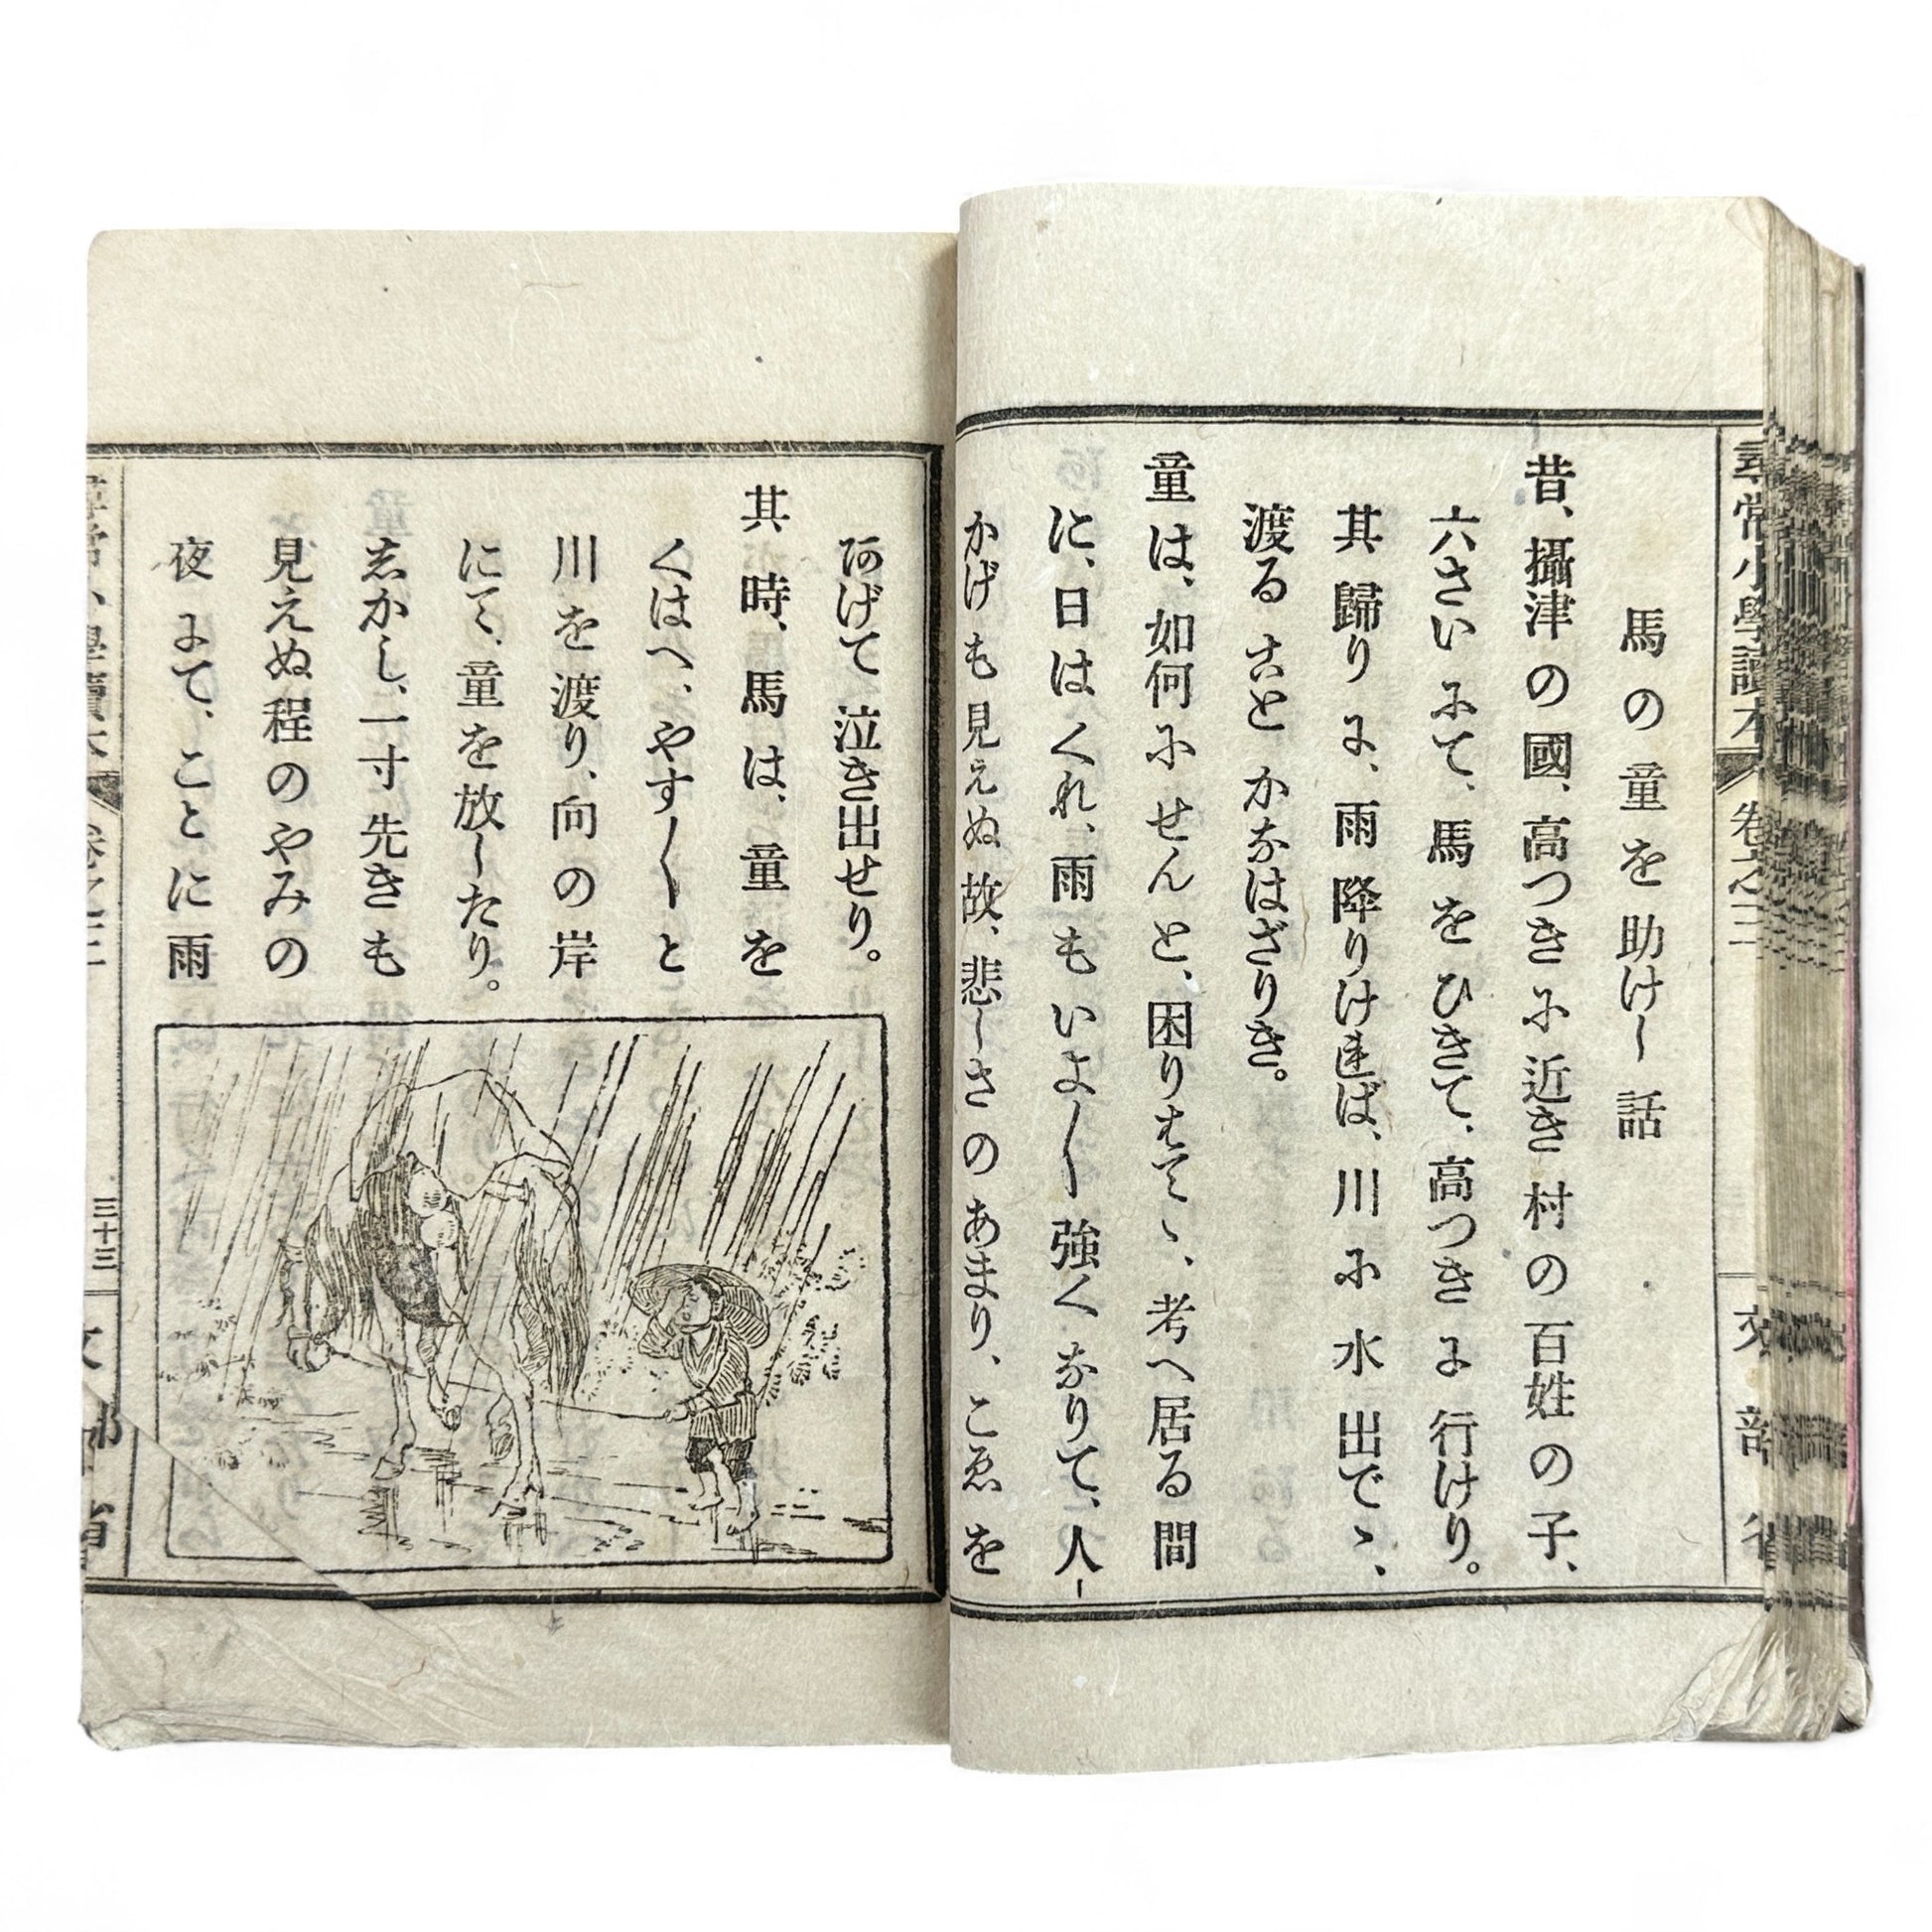 尋常小學讀本 卷之三 文部省
馬の童を助けし話
昔、攝津の國、高つきに近き村の百姓の子、
六さいにて、馬をひきて、高つきに行けり。
其歸りに、雨降りければ、川に水出でゝ、
渡ることかなはざりき。
童は、如何にせんと、困りはてゝ、考へ居る間
に、日はくれ、雨もいよ〳〵強くなりて、人
かげも見えぬ故、悲しさのあまり、こゑを
あげて泣き出せり。
其時、馬は、童を
くはへ、やす〳〵と
川を渡り、向の岸
にて、童を放したり。
しかし、一寸先きも
見えぬ程のやみの
夜にて、ことに雨
尋常小學讀本 卷之三 三十三 文部省